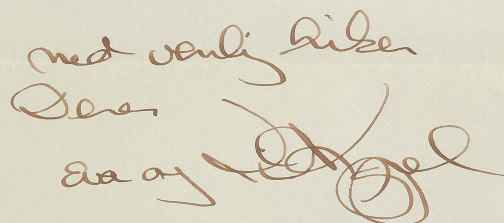 med venlig hilsen
Deres
Eva og